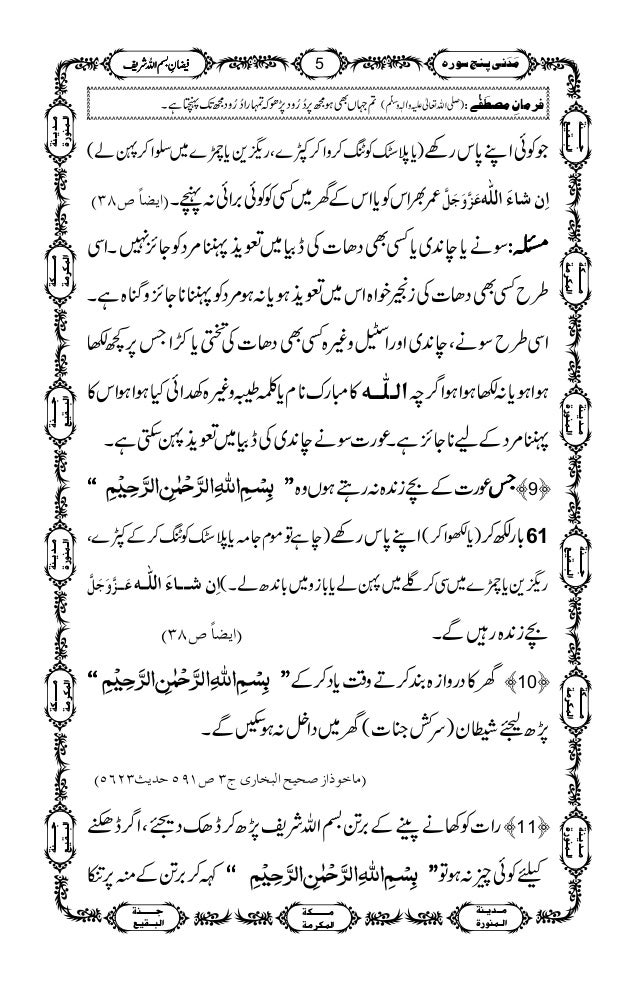 مَدَنی پنج سورہ
5
فیضانِ بسم اللہ شریف
فرمانِ مصطفٰے : (صلی اللہ تعالیٰ علیہ والہ وسلم) تم جہاں بھی ہو مجھ پر دُرُود پڑھو کہ تمہارا دُرُود مجھ تک پہنچتا ہے۔
جو کوئی اپنے پاس رکھے (یا پلاسٹک کوٹنگ کروا کر کپڑے، ریگزین یا چمڑے میں سلوا کر پہن لے)
اِن شاءَ اللّٰہ عَزَّوَجَلَّ عمر بھر اس کو یا اس کے گھر میں کسی کو کوئی برائی نہ پہنچے۔ (ایضاً ص۳۸)
مسئلہ: سونے یا چاندی یا کسی بھی دھات کی ڈبیا میں تعویذ پہننا مرد کو جائز نہیں۔ اسی
طرح کسی بھی دھات کی زنجیر خواہ اس میں تعویذ ہو یا نہ ہو مرد کو پہننا ناجائز و گناہ ہے۔
اسی طرح سونے، چاندی اور اسٹیل وغیرہ کسی بھی دھات کی تختی یا کڑا جس پر کچھ لکھا
ہوا ہو یا نہ لکھا ہوا ہو اگرچہ اللّٰہ کا مبارک نام یا کلمہ طیبہ وغیرہ کھدائی کیا ہوا ہو اس کا
پہننا مرد کے لیے ناجائز ہے۔ عورت سونے چاندی کی ڈبیا میں تعویذ پہن سکتی ہے۔
﴿9﴾ جس عورت کے بچے زندہ نہ رہتے ہوں وہ ” بِسْمِ اللّٰہِ الرَّحْمٰنِ الرَّحِیْمِ “
61 بار لکھ کر (یا لکھوا کر) اپنے پاس رکھے (چاہے تو موم جامہ یا پلاسٹک کوٹنگ کر کے کپڑے،
ریگزین یا چمڑے میں سی کر گلے میں پہن لے یا بازو میں باندھ لے۔) اِن شاءَ اللّٰہ عَزَّوَجَلَّ
بچے زندہ رہیں گے۔ (ایضاً ص۳۸)
﴿10﴾ گھر کا دروازہ بند کرتے وقت یاد کر کے ” بِسْمِ اللّٰہِ الرَّحْمٰنِ الرَّحِیْمِ “
پڑھ لیجئے شیطان (سرکش جنات) گھر میں داخل نہ ہو سکیں گے۔
(ماخوذاز صحیح البخاری ج۳ ص۵۹۱ حدیث۵۶۲۳)
﴿11﴾ رات کو کھانے پینے کے برتن بسم اللہ شریف پڑھ کر ڈھک دیجئے، اگر ڈھکنے
کیلئے کوئی چیز نہ ہو تو ” بِسْمِ اللّٰہِ الرَّحْمٰنِ الرَّحِیْمِ “ کہہ کر برتن کے منہ پر تنکا
جنة البقیع
مکة المکرمة
مدینة المنورة
جنة البقیع
مکة المکرمة
مدینة المنورة
مدینة المنورة
مکة المکرمة
جنة البقیع
مدینة المنورة
مکة المکرمة
جنة البقیع
مدینة المنورة
مکة المکرمة
جنة البقیع